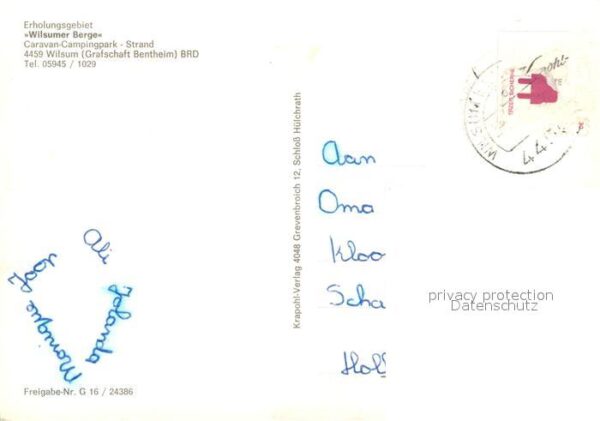 Erholungsgebiet
»Wilsumer Berge«
Caravan-Campingpark - Strand
4459 Wilsum (Grafschaft Bentheim) BRD
Tel. 05945 / 1029
Ali
Jolanda
Monique
Freigabe-Nr. G 16 / 24386
Krapohl-Verlag 4048 Grevenbroich 12, Schloß Hülchrath
Aan
Oma
Kloo
Scha
Hol
privacy protection
Datenschutz